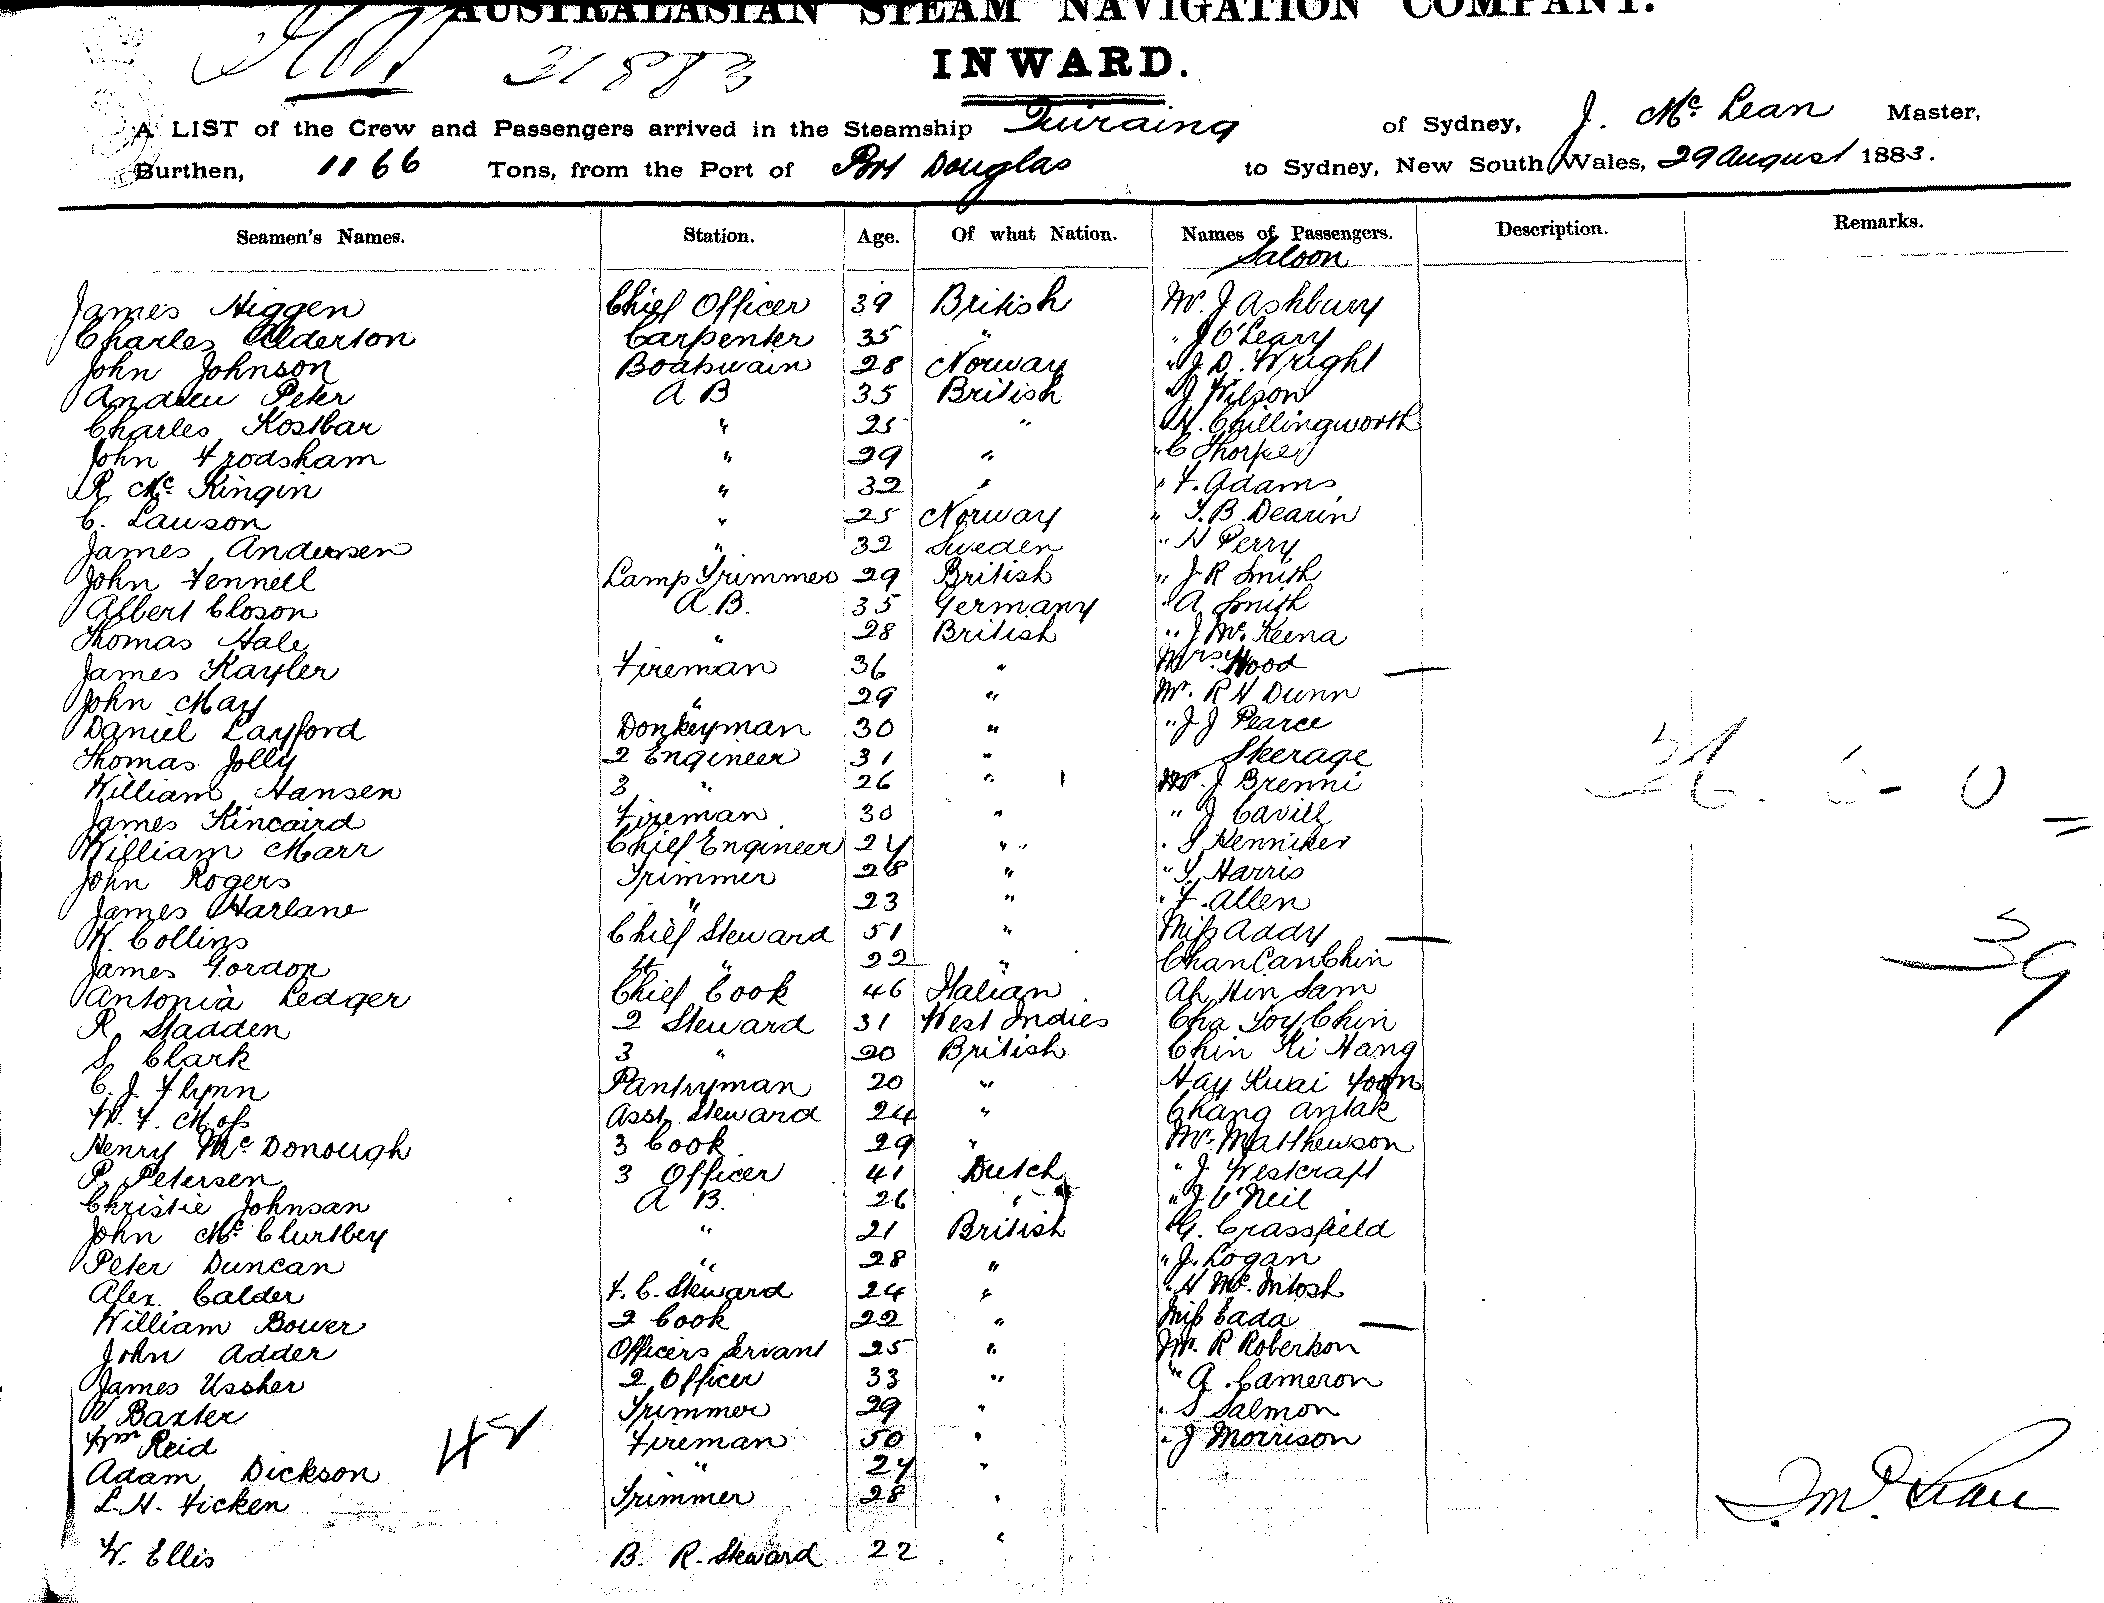 AUSTRALASIAN STEAM NAVIGATION COMPANY.
31883
INWARD.
A LIST of the Crew and Passengers arrived in the Steamship Quiraing of Sydney, J. McLean Master,
Burthen, 1166 Tons, from the Port of Port Douglas to Sydney, New South Wales, 29 August 1883.
Seamen's Names. Station. Age. Of what Nation. Names of Passengers. Description. Remarks.
Saloon
James Higgen Chief Officer 39 British Mr. J Ashbury
Charles Alderton Carpenter 35 " " J O'Leary
John Johnson Boatswain 28 Norway " J. D. Wright
Andrew Peter A B 35 British " J Wilson
Charles Kostbar " 25 " " Chillingworth
John Frodsham " 29 " " C Thorpe
R McKingin " 32 " " F. Adams
C. Lawson " 25 Norway " T. B. Dearin
James Andersen " 32 Sweden " H Perry
John Fennell Lamp Trimmer 29 British " J R Smith
Albert Closon A. B. 35 Germany " A Smith
Thomas Hale " 28 British " J McKeena
James Kayler Fireman 36 " Mrs Hood —
John May " 29 " Mr. R H Dunn
Daniel Layford Donkeyman 30 " " J J Pearce
Thomas Jolly 2 Engineer 31 " Steerage
William Hansen 3 " 26 " Mr. J Brenni
James Kincaird Fireman 30 " " J Cavill
William Marr Chief Engineer 24 " " S Henniker
John Rogers Trimmer 28 " " T. Harris
James Harlane " 23 " " F. Allen
W. Collins Chief Steward 51 " Miss Addy —
James Gordon " 22 " Chan Can Chin
Antonia Ledger Chief Cook 46 Italian Ah Hin Sam
R. Stadden 2 Steward 31 West Indies Cha Soy Chin
S. Clark 3 " 20 British Chin Ki Hang
C. J. Flynn Pantryman 20 " Hay Kwai Yoon
W. F. Moss Asst. Steward 24 " Chang
Henry McDonough 3 Cook 29 " Mr. Matthewson
P. Petersen 3 Officer 41 Dutch " J Westcraft
Christie Johnsan A B. 26 " " J O'Neil
John McClurtbey " 21 British " G. Crassfield
Peter Duncan " 28 " " J. Logan
Alex. Calder F. C. Steward 24 " " H McIntosh
William Bower 2 Cook 22 " Miss Cada —
John Adder Officers Servant 25 " Mr. R Robertson
James Ussher 2 Officer 33 " " A. Cameron
Baxter Trimmer 29 " " S Salmon
Wm Reid Fireman 50 " " J Morrison
Adam Dickson " 24 "
L. H. Ficken Trimmer 28 "
W. Ellis B. R. Steward 22 "
39
J. McLean